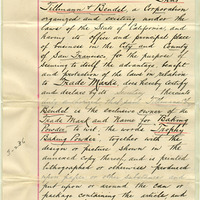 Tillmann & Bendel, a Corporation
organized and existing under the
laws of the State of California, and
having its office and principal place
of business in the City and County
of San Francisco, for the purpose of
securing to itself the advantage, benefit
and protection of the laws in relation
to Trade Marks, does hereby certify
and declare
Bendel is the exclusive owner of a
Trade Mark and Name for Baking
Powder, to wit: the words Trophy
Baking Powder, together with the
design or picture shown in the
annexed copy thereof, and is printed
lithographed or otherwise produced
upon paper or other
put upon or around the can or
package containing the article and